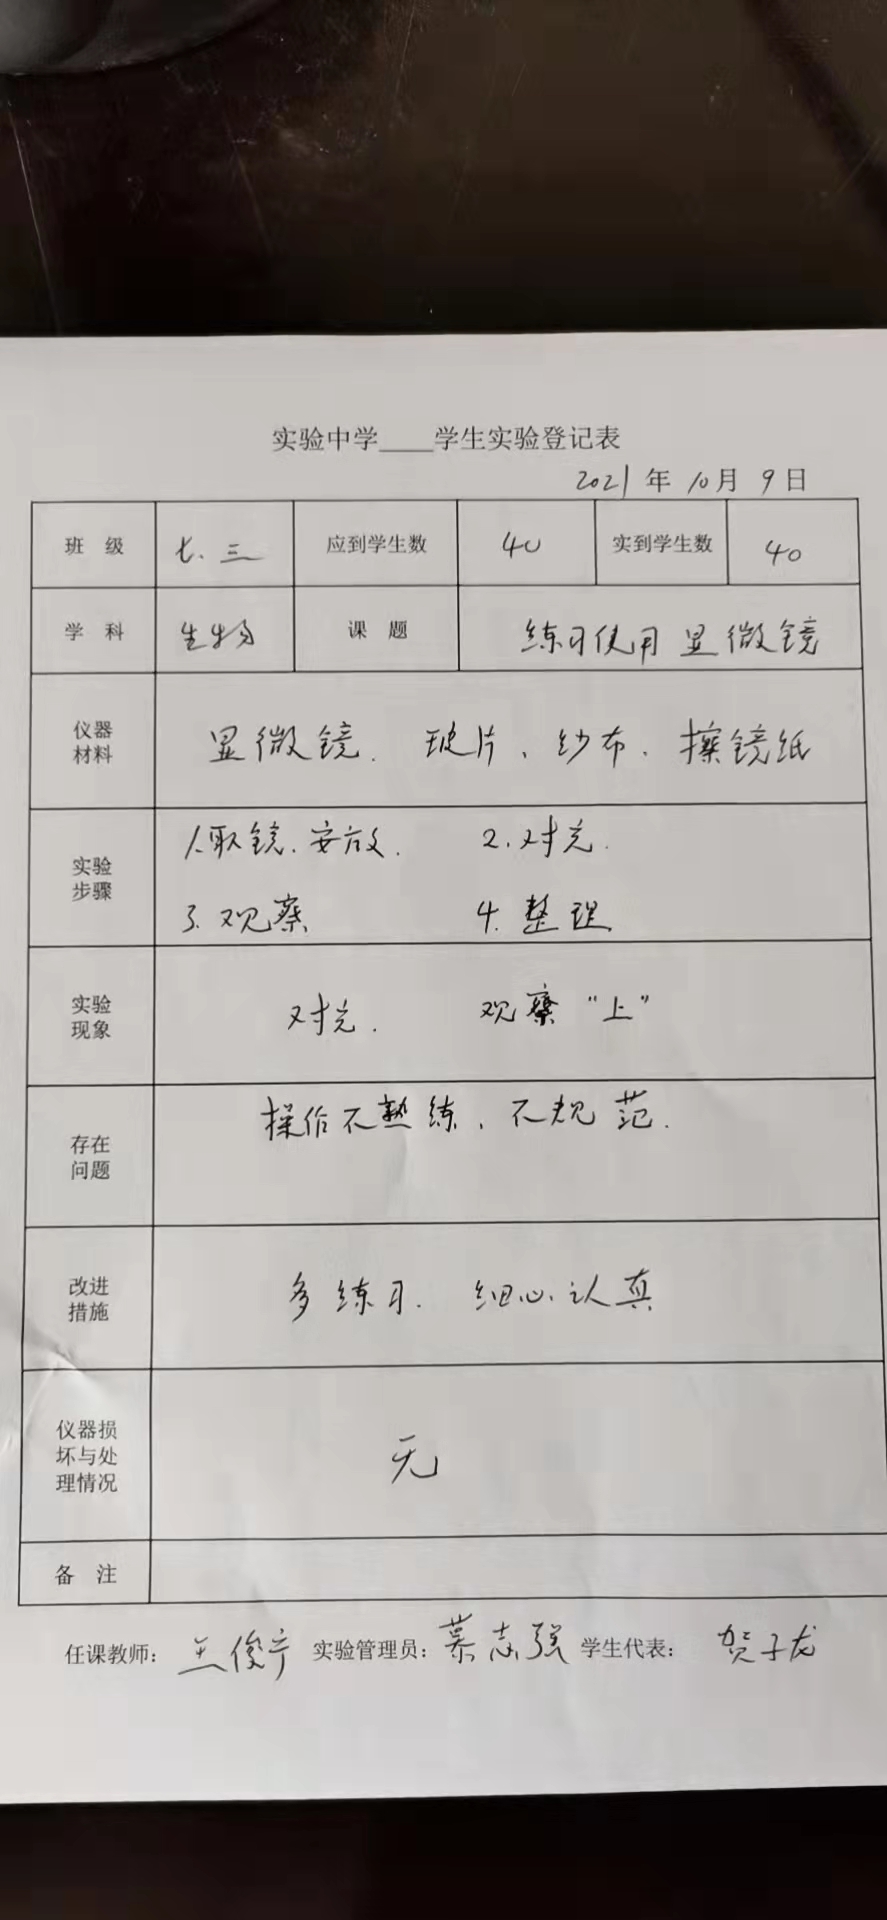 实验中学____学生实验登记表
2021年10月9日
班 级 七.三 应到学生数 40 实到学生数 40
学 科 生物 课 题 练习使用显微镜
仪器
材料
显微镜. 玻片、纱布、擦镜纸
实验
步骤
1.取镜.安放. 2.对光.
3.观察 4.整理
实验
现象
对光. 观察“上”
存在
问题
操作不熟练、不规范.
改进
措施
多练习. 细心.认真
仪器损
坏与处
理情况
无
备 注
任课教师: 王俊 实验管理员: 慕志强 学生代表: 贺子龙